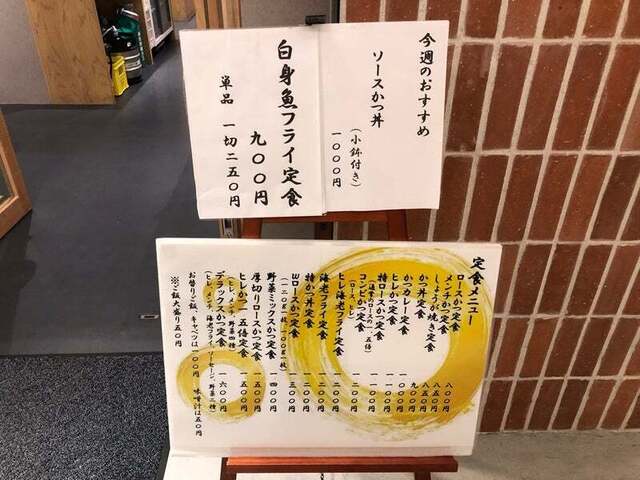 今週のおすすめ
ソースかつ丼
(小鉢付き)
一〇〇〇円
白身魚フライ定食
九〇〇円
単品 一切二五〇円
定食メニュー
ロースかつ定食 八〇〇円
メンチかつ定食 八五〇円
しょうが焼き定食 八五〇円
かつ丼定食 九〇〇円
かつカレー定食 一〇〇〇円
ヒレかつ定食
特ロースかつ定食
(通常のロースの一、五倍)
コンビかつ定食
(ロース、ヒレ)
ヒレ海老フライ定食
海老フライ定食
特かつ丼定食
Wロースかつ定食
(一二〇g一枚、一〇〇g一枚)
野菜ミックスかつ定食 一四〇〇円
厚切りロースかつ定食 一五〇〇円
ヒレかつ一、五倍定食 一五〇〇円
デラックスかつ定食 一六〇〇円
お替りご飯、キャベツは一〇〇円 味噌汁は五〇円
※ご飯大盛り五〇円